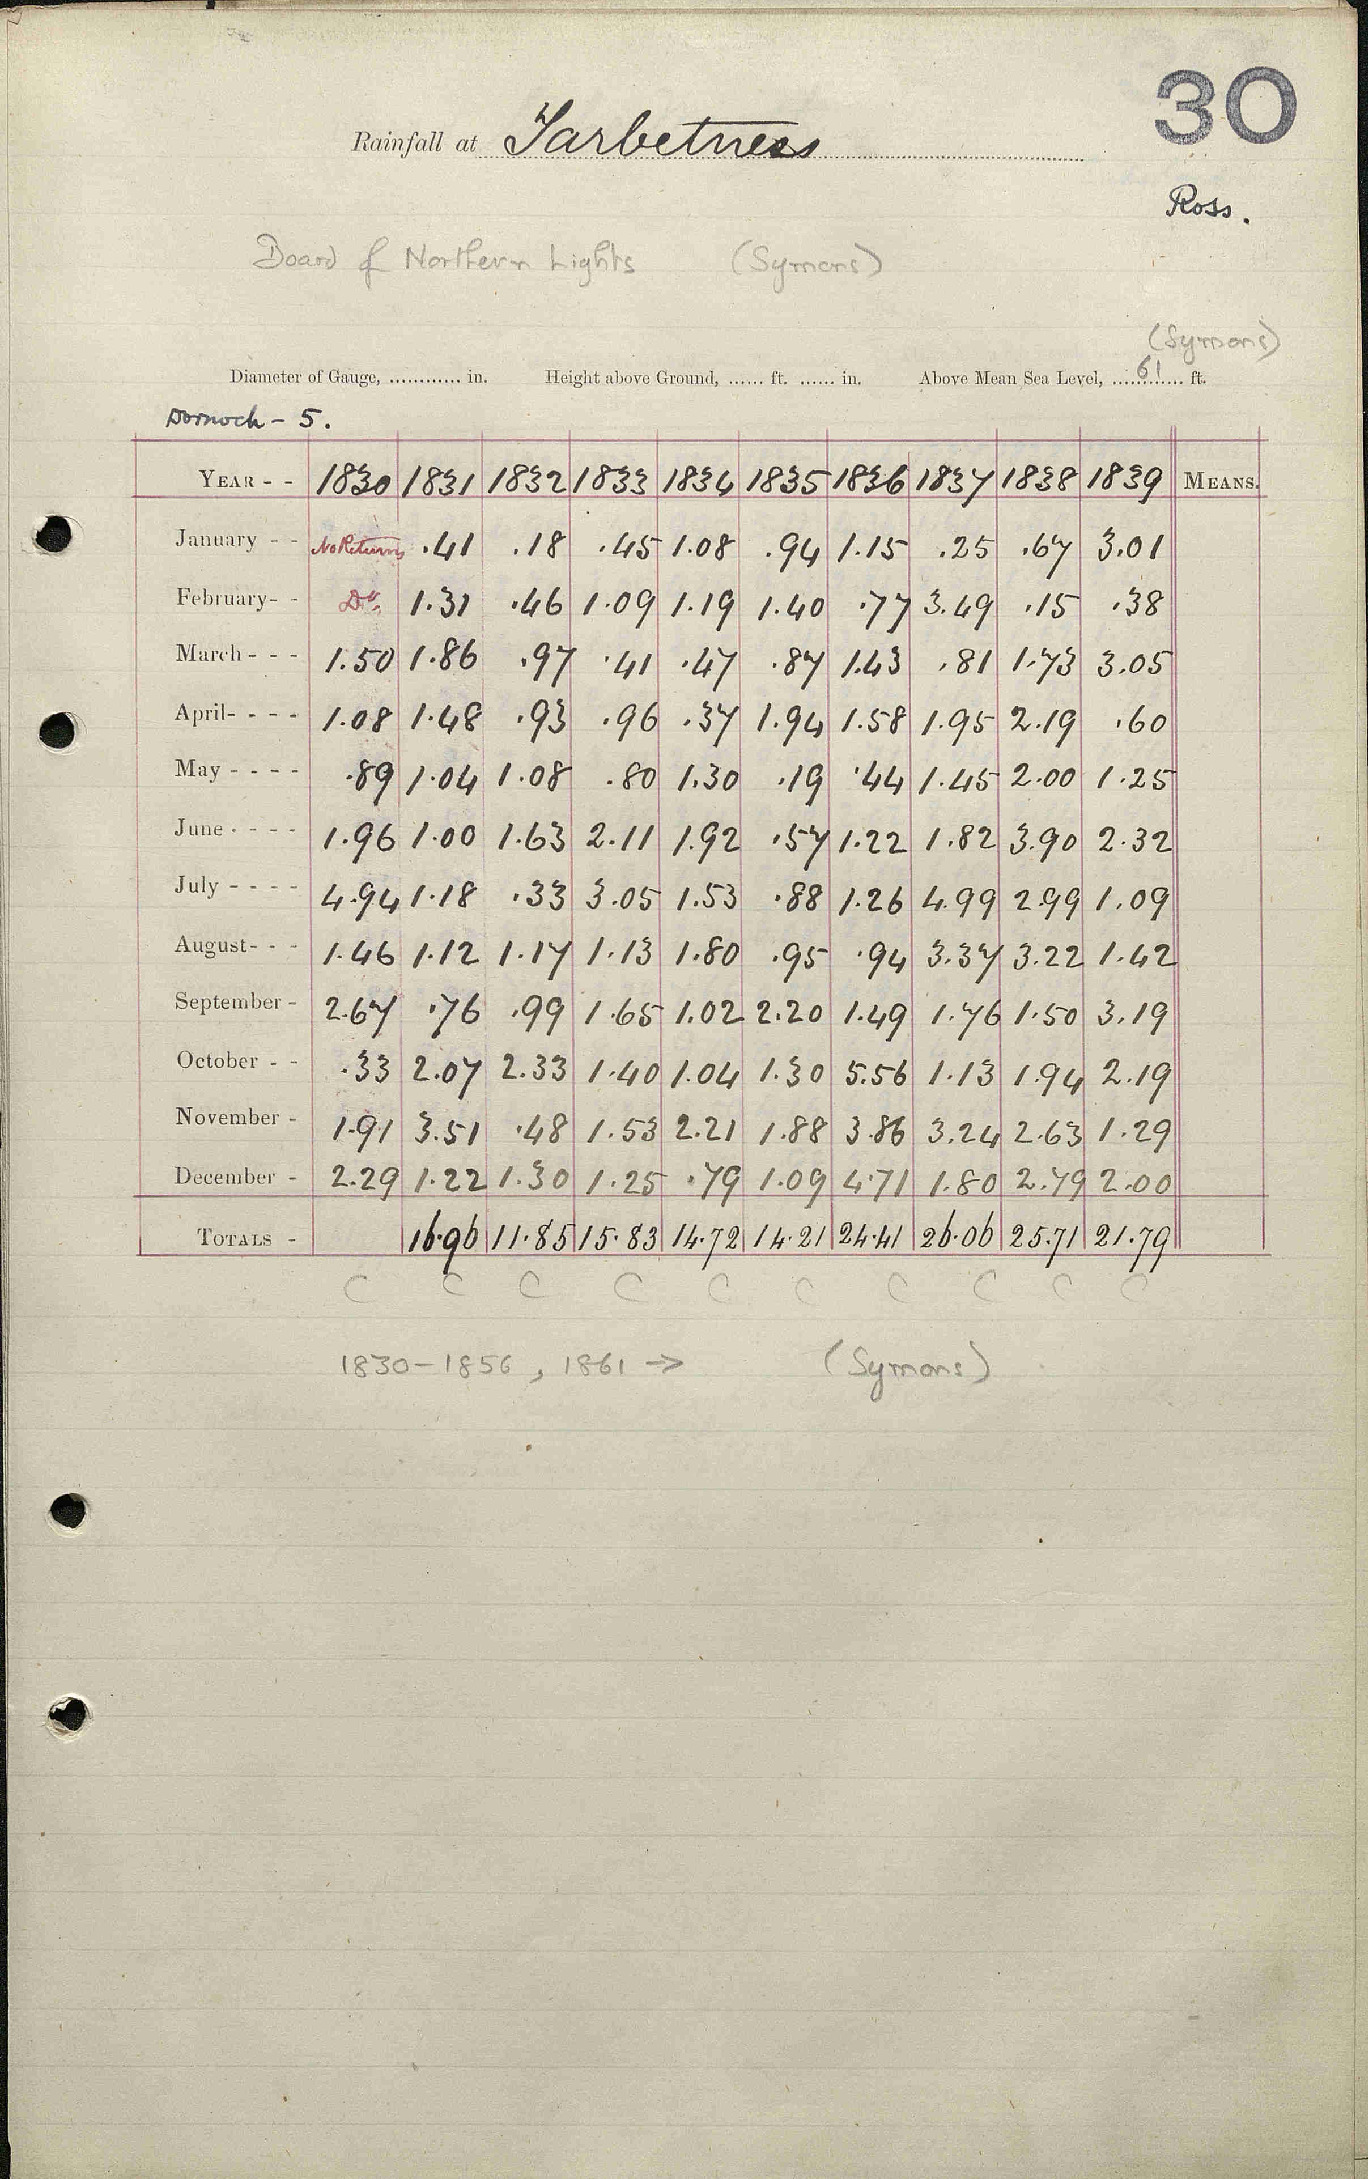 30
Rainfall at Tarbetness
Ross.
Board of Northern Lights (Symons)
(Symons)
Diameter of Gauge, ............ in. Height above Ground, ...... ft. ...... in. Above Mean Sea Level, 61 ft.
Dornoch - 5.
YEAR - - 1830 1831 1832 1833 1834 1835 1836 1837 1838 1839 MEANS.
January - - No Return .41 .18 .45 1.08 .94 1.15 .25 .67 3.01
February- - Do. 1.31 .46 1.09 1.19 1.40 .77 3.49 .15 .38
March - - - 1.50 1.86 .97 .41 .47 .87 1.43 .81 1.73 3.05
April- - - - 1.08 1.48 .93 .96 .37 1.94 1.58 1.95 2.19 .60
May - - - - .89 1.04 1.08 .80 1.30 .19 .44 1.45 2.00 1.25
June - - - - 1.96 1.00 1.63 2.11 1.92 .57 1.22 1.82 3.90 2.32
July - - - - 4.94 1.18 .33 3.05 1.53 .88 1.26 4.99 2.99 1.09
August- - - 1.46 1.12 1.17 1.13 1.80 .95 .94 3.37 3.22 1.42
September - 2.67 .76 .99 1.65 1.02 2.20 1.49 1.76 1.50 3.19
October - - .33 2.07 2.33 1.40 1.04 1.30 5.56 1.13 1.94 2.19
November - 1.91 3.51 .48 1.53 2.21 1.88 3.86 3.24 2.63 1.29
December - 2.29 1.22 1.30 1.25 .79 1.09 4.71 1.80 2.79 2.00
TOTALS - 16.96 11.85 15.83 14.72 14.21 24.41 26.06 25.71 21.79
C C C C C C C C C C
1830-1856, 1861 → (Symons)